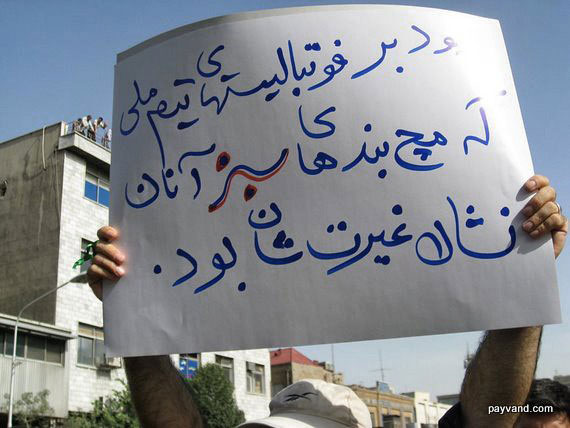 بر فوتبالیستهای تیم ملی
که مچ بندهای سبز آنان
نشان غیرت شان بود.
payvand.com